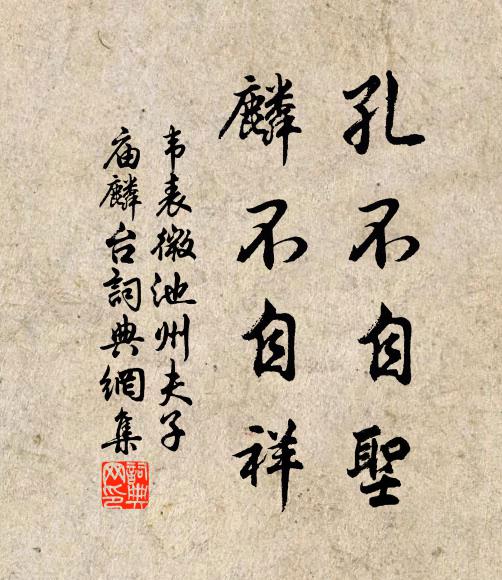 孔不自聖
麟不自祥
韦表微池州夫子
庙麟台詞典網集
詞典網印